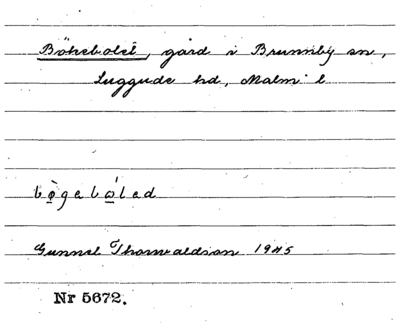 Bökebolet, gård i Brunnby sn,
Luggude hd, Malm. l.
bø̀gəbώ̲ləd
Gunnel Thorwaldson 1945
Nr 5672.